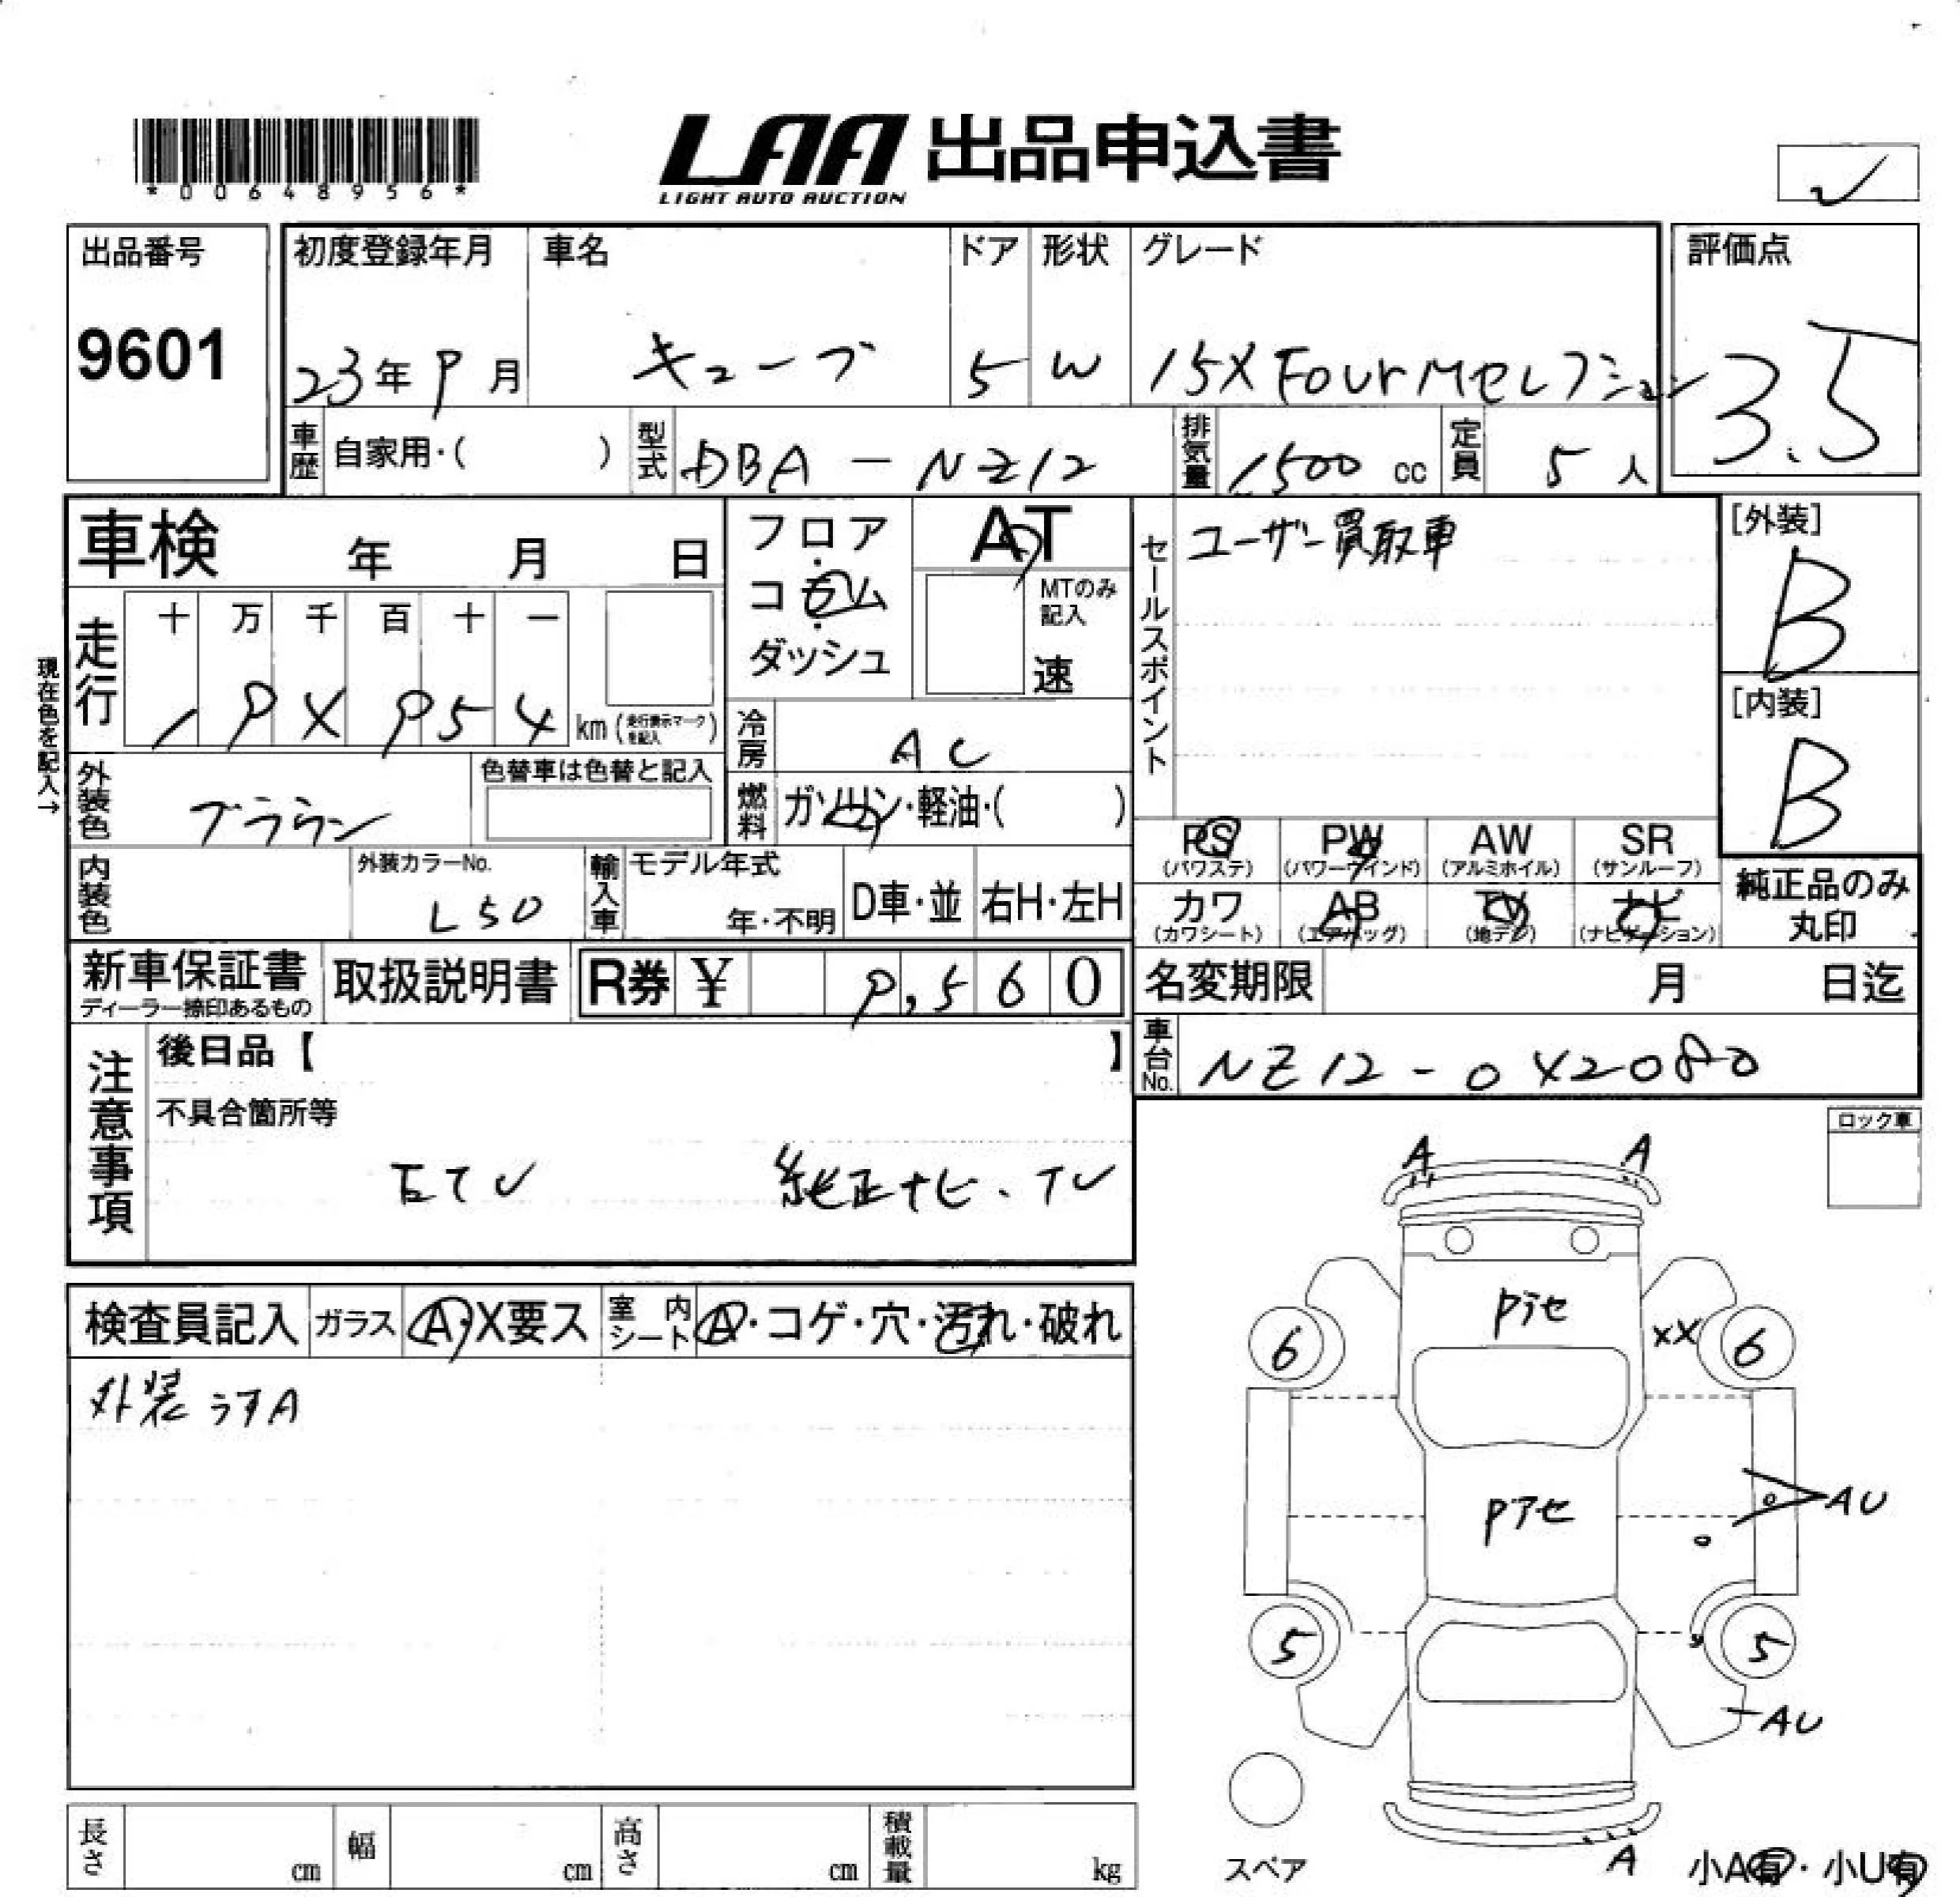 *00648956*
LAA 出品申込書
LIGHT AUTO AUCTION
出品番号
9601
初度登録年月
23年9月
車名
キューブ
ドア
5
形状
W
グレード
15X FourMセレクション
評価点
3.5
車歴 自家用・( )
型式 DBA-NZ12
排気量 1500 cc
定員 5 人
車検 年 月 日
フロア・コラム・ダッシュ
AT
MTのみ記入
速
セールスポイント
ユーザー買取車
[外装]
B
[内装]
B
現在色を記入→
走行
十 万 千 百 十 一
km (走行表示マークを記入)
冷房 AC
外装色 ブラウン
色替車は色替と記入
燃料 ガソリン・軽油・( )
PS (パワステ)
PW (パワーウインド)
AW (アルミホイル)
SR (サンルーフ)
内装色
外装カラーNo.
L50
輸入車
モデル年式
年・不明
D車・並
右H・左H
カワ (カワシート)
AB (エアバッグ)
TV (地デジ)
ナビ (ナビゲーション)
純正品のみ
丸印
新車保証書
ディーラー捺印あるもの
取扱説明書
R券 ¥ 9,560
名変期限 月 日迄
注意事項
後日品【 】
不具合箇所等
純正ナビ、TV
車台No. NZ12-042080
ロック車
検査員記入
ガラス A・X要ス
室内シート A・コゲ・穴・汚れ・破れ
外装うすA
A A
Pアセ
XX
6 6
Pアセ
AU
5 5
AU
スペア
A
小A有・小U有
長さ cm
幅 cm
高さ cm
積載量 kg